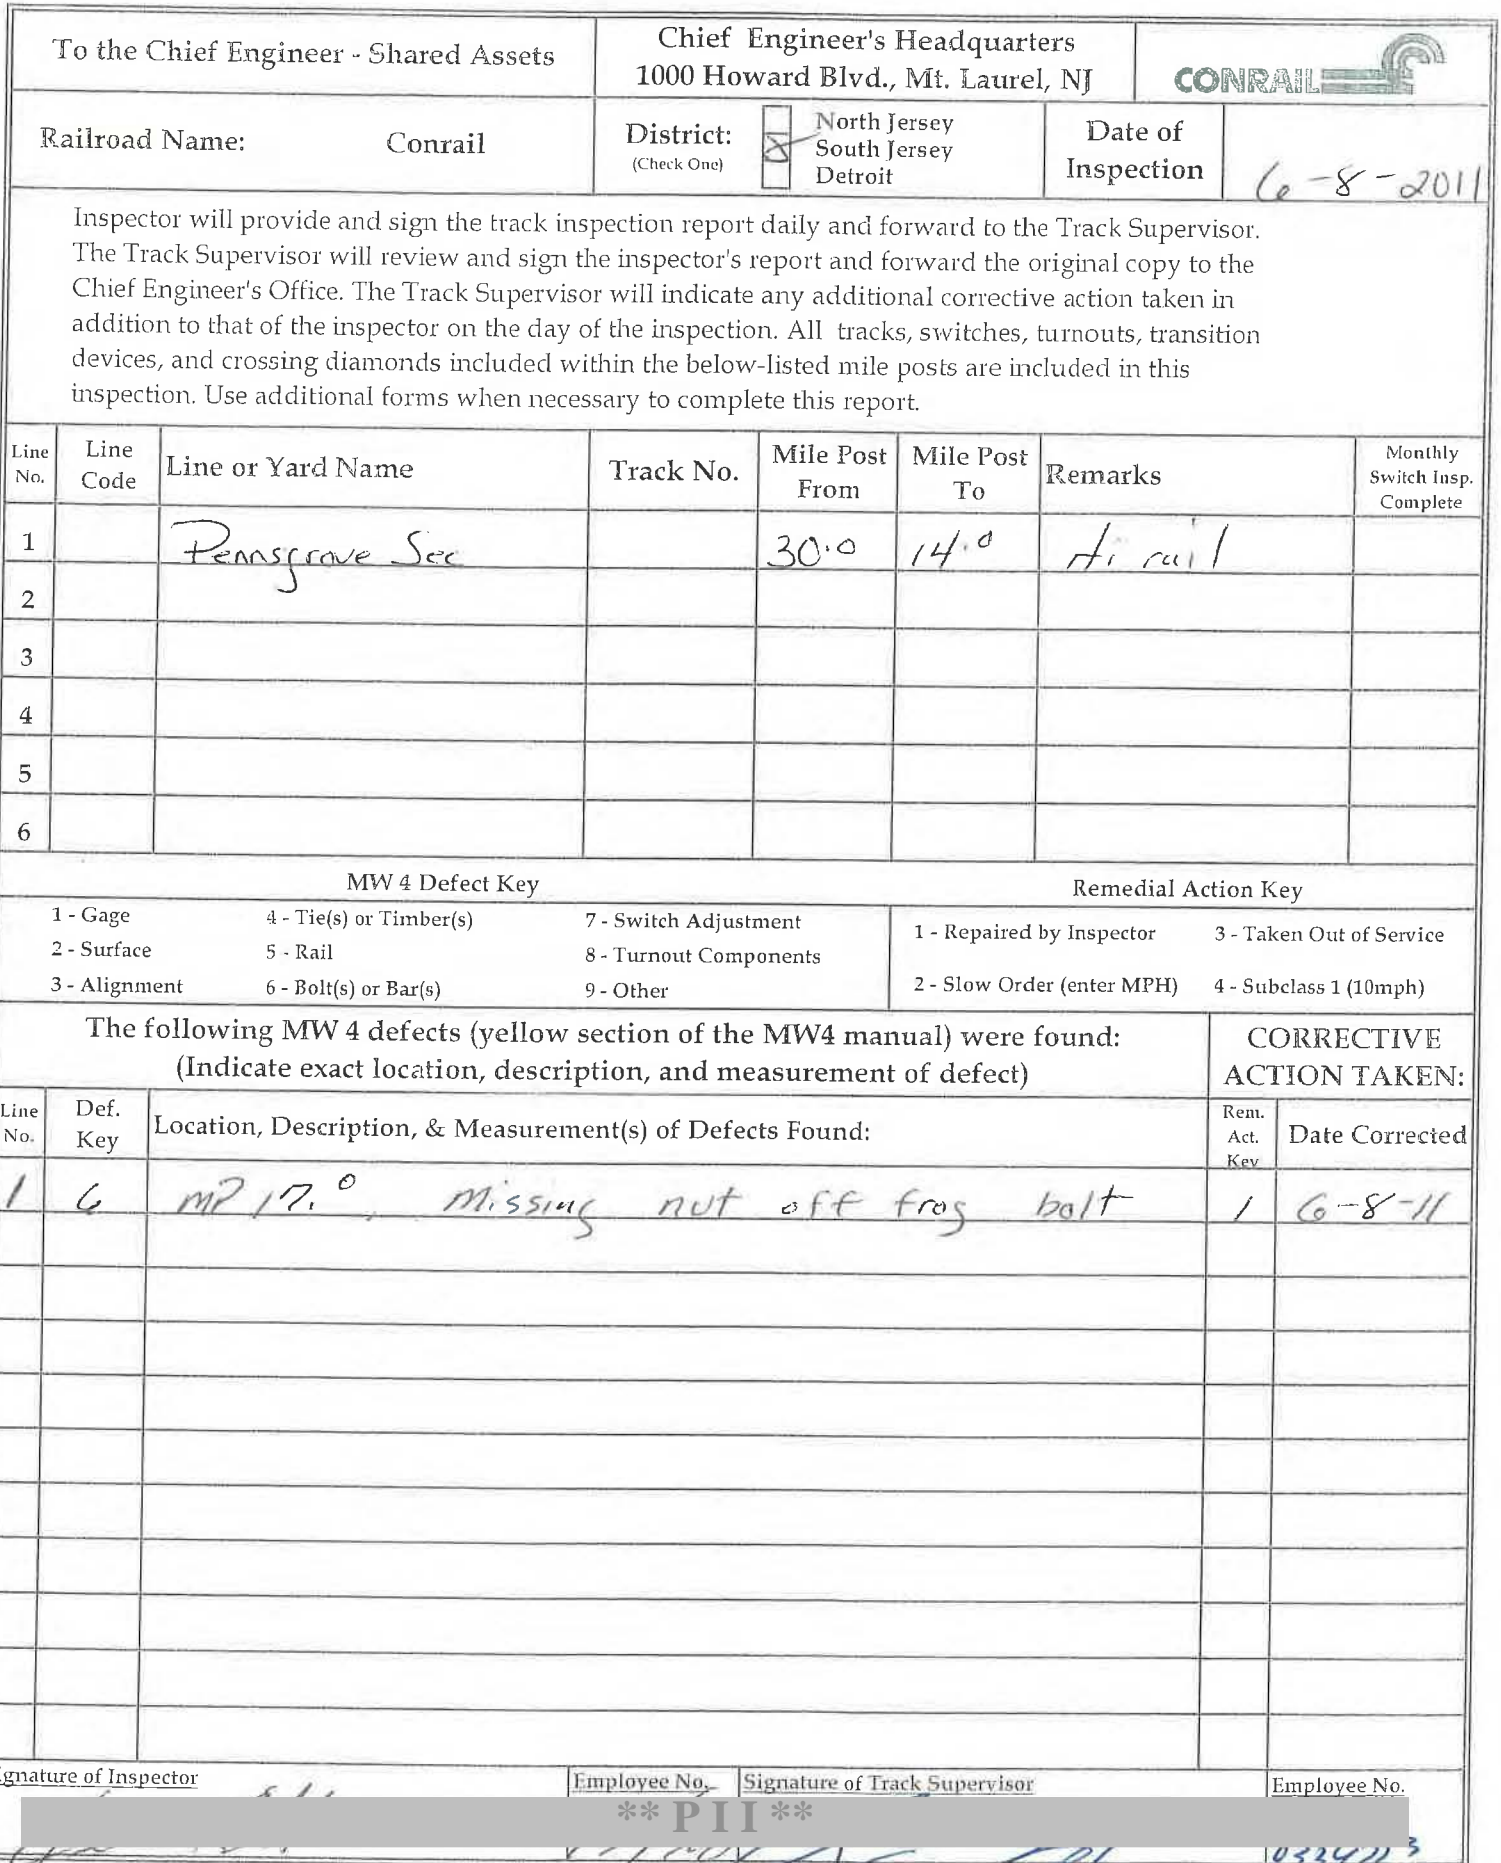 To the Chief Engineer - Shared Assets
Chief Engineer's Headquarters
1000 Howard Blvd., Mt. Laurel, NJ
CONRAIL
Railroad Name: Conrail
District:
(Check One)
North Jersey
South Jersey
Detroit
Date of
Inspection
6-8-2011
Inspector will provide and sign the track inspection report daily and forward to the Track Supervisor.
The Track Supervisor will review and sign the inspector's report and forward the original copy to the
Chief Engineer's Office. The Track Supervisor will indicate any additional corrective action taken in
addition to that of the inspector on the day of the inspection. All tracks, switches, turnouts, transition
devices, and crossing diamonds included within the below-listed mile posts are included in this
inspection. Use additional forms when necessary to complete this report.
Line No. Line Code Line or Yard Name Track No. Mile Post From Mile Post To Remarks Monthly Switch Insp. Complete
1 Pennsgrove Sec 30.0 14.0 Hi rail
2
3
4
5
6
MW 4 Defect Key
1 - Gage 4 - Tie(s) or Timber(s) 7 - Switch Adjustment
2 - Surface 5 - Rail 8 - Turnout Components
3 - Alignment 6 - Bolt(s) or Bar(s) 9 - Other
Remedial Action Key
1 - Repaired by Inspector 3 - Taken Out of Service
2 - Slow Order (enter MPH) 4 - Subclass 1 (10mph)
The following MW 4 defects (yellow section of the MW4 manual) were found:
(Indicate exact location, description, and measurement of defect)
CORRECTIVE
ACTION TAKEN:
Line No. Def. Key Location, Description, & Measurement(s) of Defects Found: Rem. Act. Key Date Corrected
1 6 MP 17.0, Missing nut off frog bolt 1 6-8-11
gnature of Inspector Employee No. Signature of Track Supervisor Employee No.
** P I I **